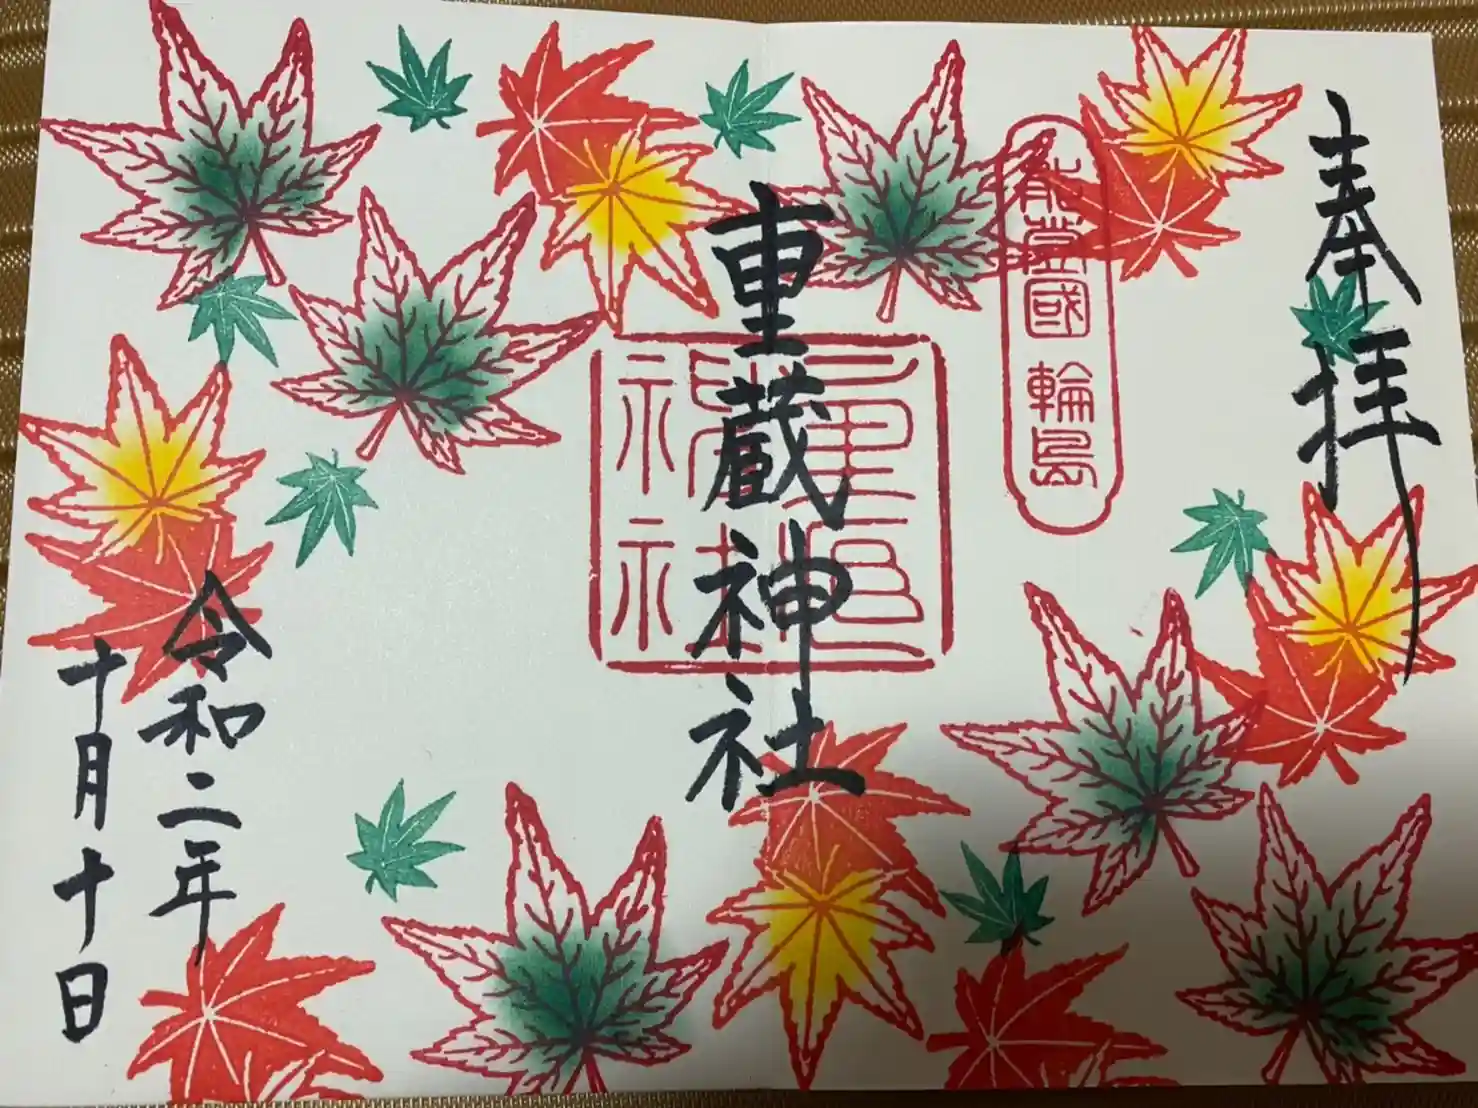 奉拝
能登國 輪島
重蔵神社
令和二年
十月十日